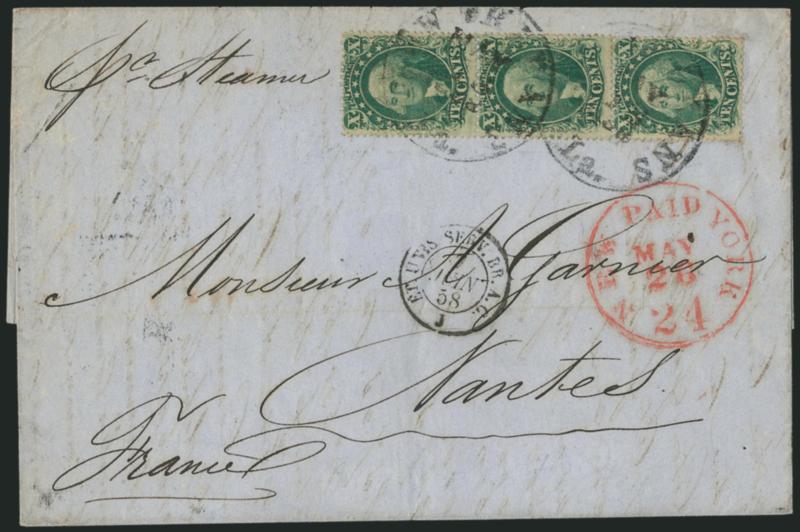 pr Steamer
X TEN CENTS. X
X TEN CENTS. X
X TEN CENTS. X
LA.
NEW PAID YORK
MAY
26
24
ET. UNIS SERV. BR. A.C.
JUIN
58
Monsieur A Garnier
Nantes
France